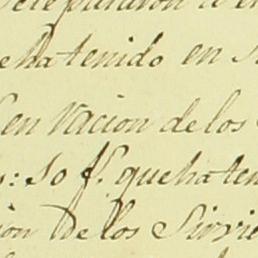 eha tenido en
en vacion de los
: so f. que ha ten
ion de los Sirvie